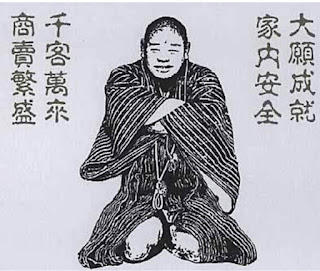 大願成就
家内安全
千客萬來
商賣繁盛